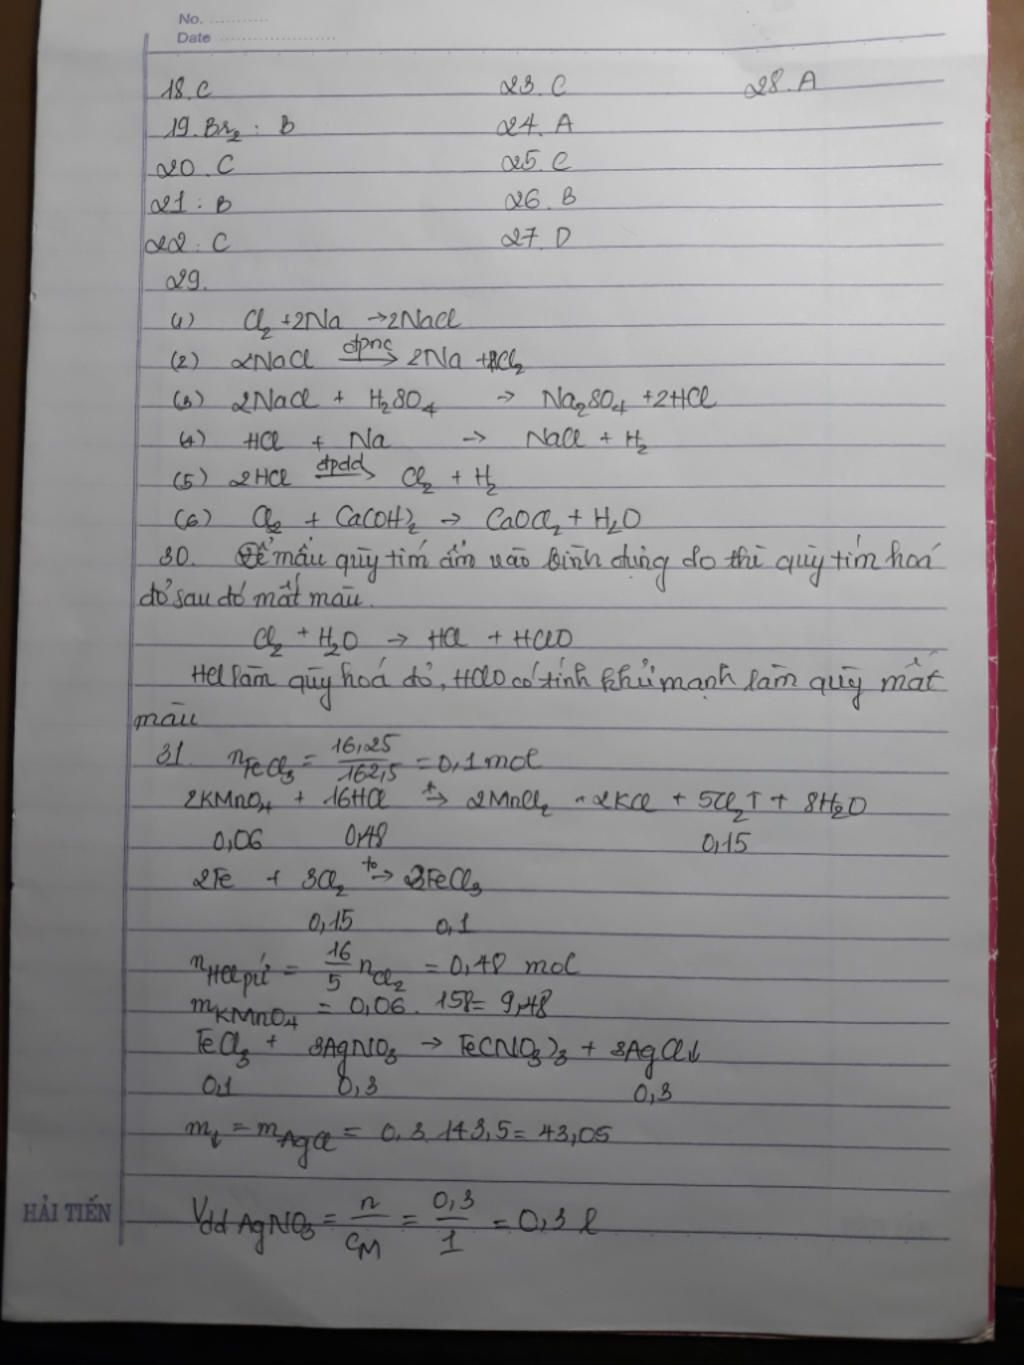 No. ............
Date ......................
18. C 23. C 28. A
19. Br₂ : B 24. A
20. C 25. C
21 : B 26. B
22 : C 27. D
29.
(1) Cl₂ + 2Na → 2NaCl
(2) 2NaCl đpnc→ 2Na + Cl₂
(3) 2NaCl + H₂SO₄ → Na₂SO₄ + 2HCl
(4) HCl + Na → NaCl + H₂
(5) 2HCl đpdd→ Cl₂ + H₂
(6) Cl₂ + Ca(OH)₂ → CaOCl₂ + H₂O
30. Để mẩu quỳ tím ẩm vào bình đựng do thì quỳ tím hoá
đỏ sau đó mất màu.
Cl₂ + H₂O → HCl + HClO
HCl làm quỳ hoá đỏ, HClO có tính khử mạnh làm quỳ mất
màu
31. n FeCl₃ = 16,25/162,5 = 0,1 mol
2KMnO₄ + 16HCl t→ 2MnCl₂ + 2KCl + 5Cl₂↑ + 8H₂O
0,06 0,48 0,15
2Fe + 3Cl₂ t°→ 2FeCl₃
0,15 0,1
n HCl pứ = 16/5 n Cl₂ = 0,48 mol
m KMnO₄ = 0,06 . 158 = 9,48
FeCl₃ + 3AgNO₃ → Fe(NO₃)₃ + 3AgCl↓
0,1 0,3 0,3
m↓ = m AgCl = 0,3.143,5 = 43,05
HẢI TIẾN
V dd AgNO₃ = n/C_M = 0,3/1 = 0,3 l